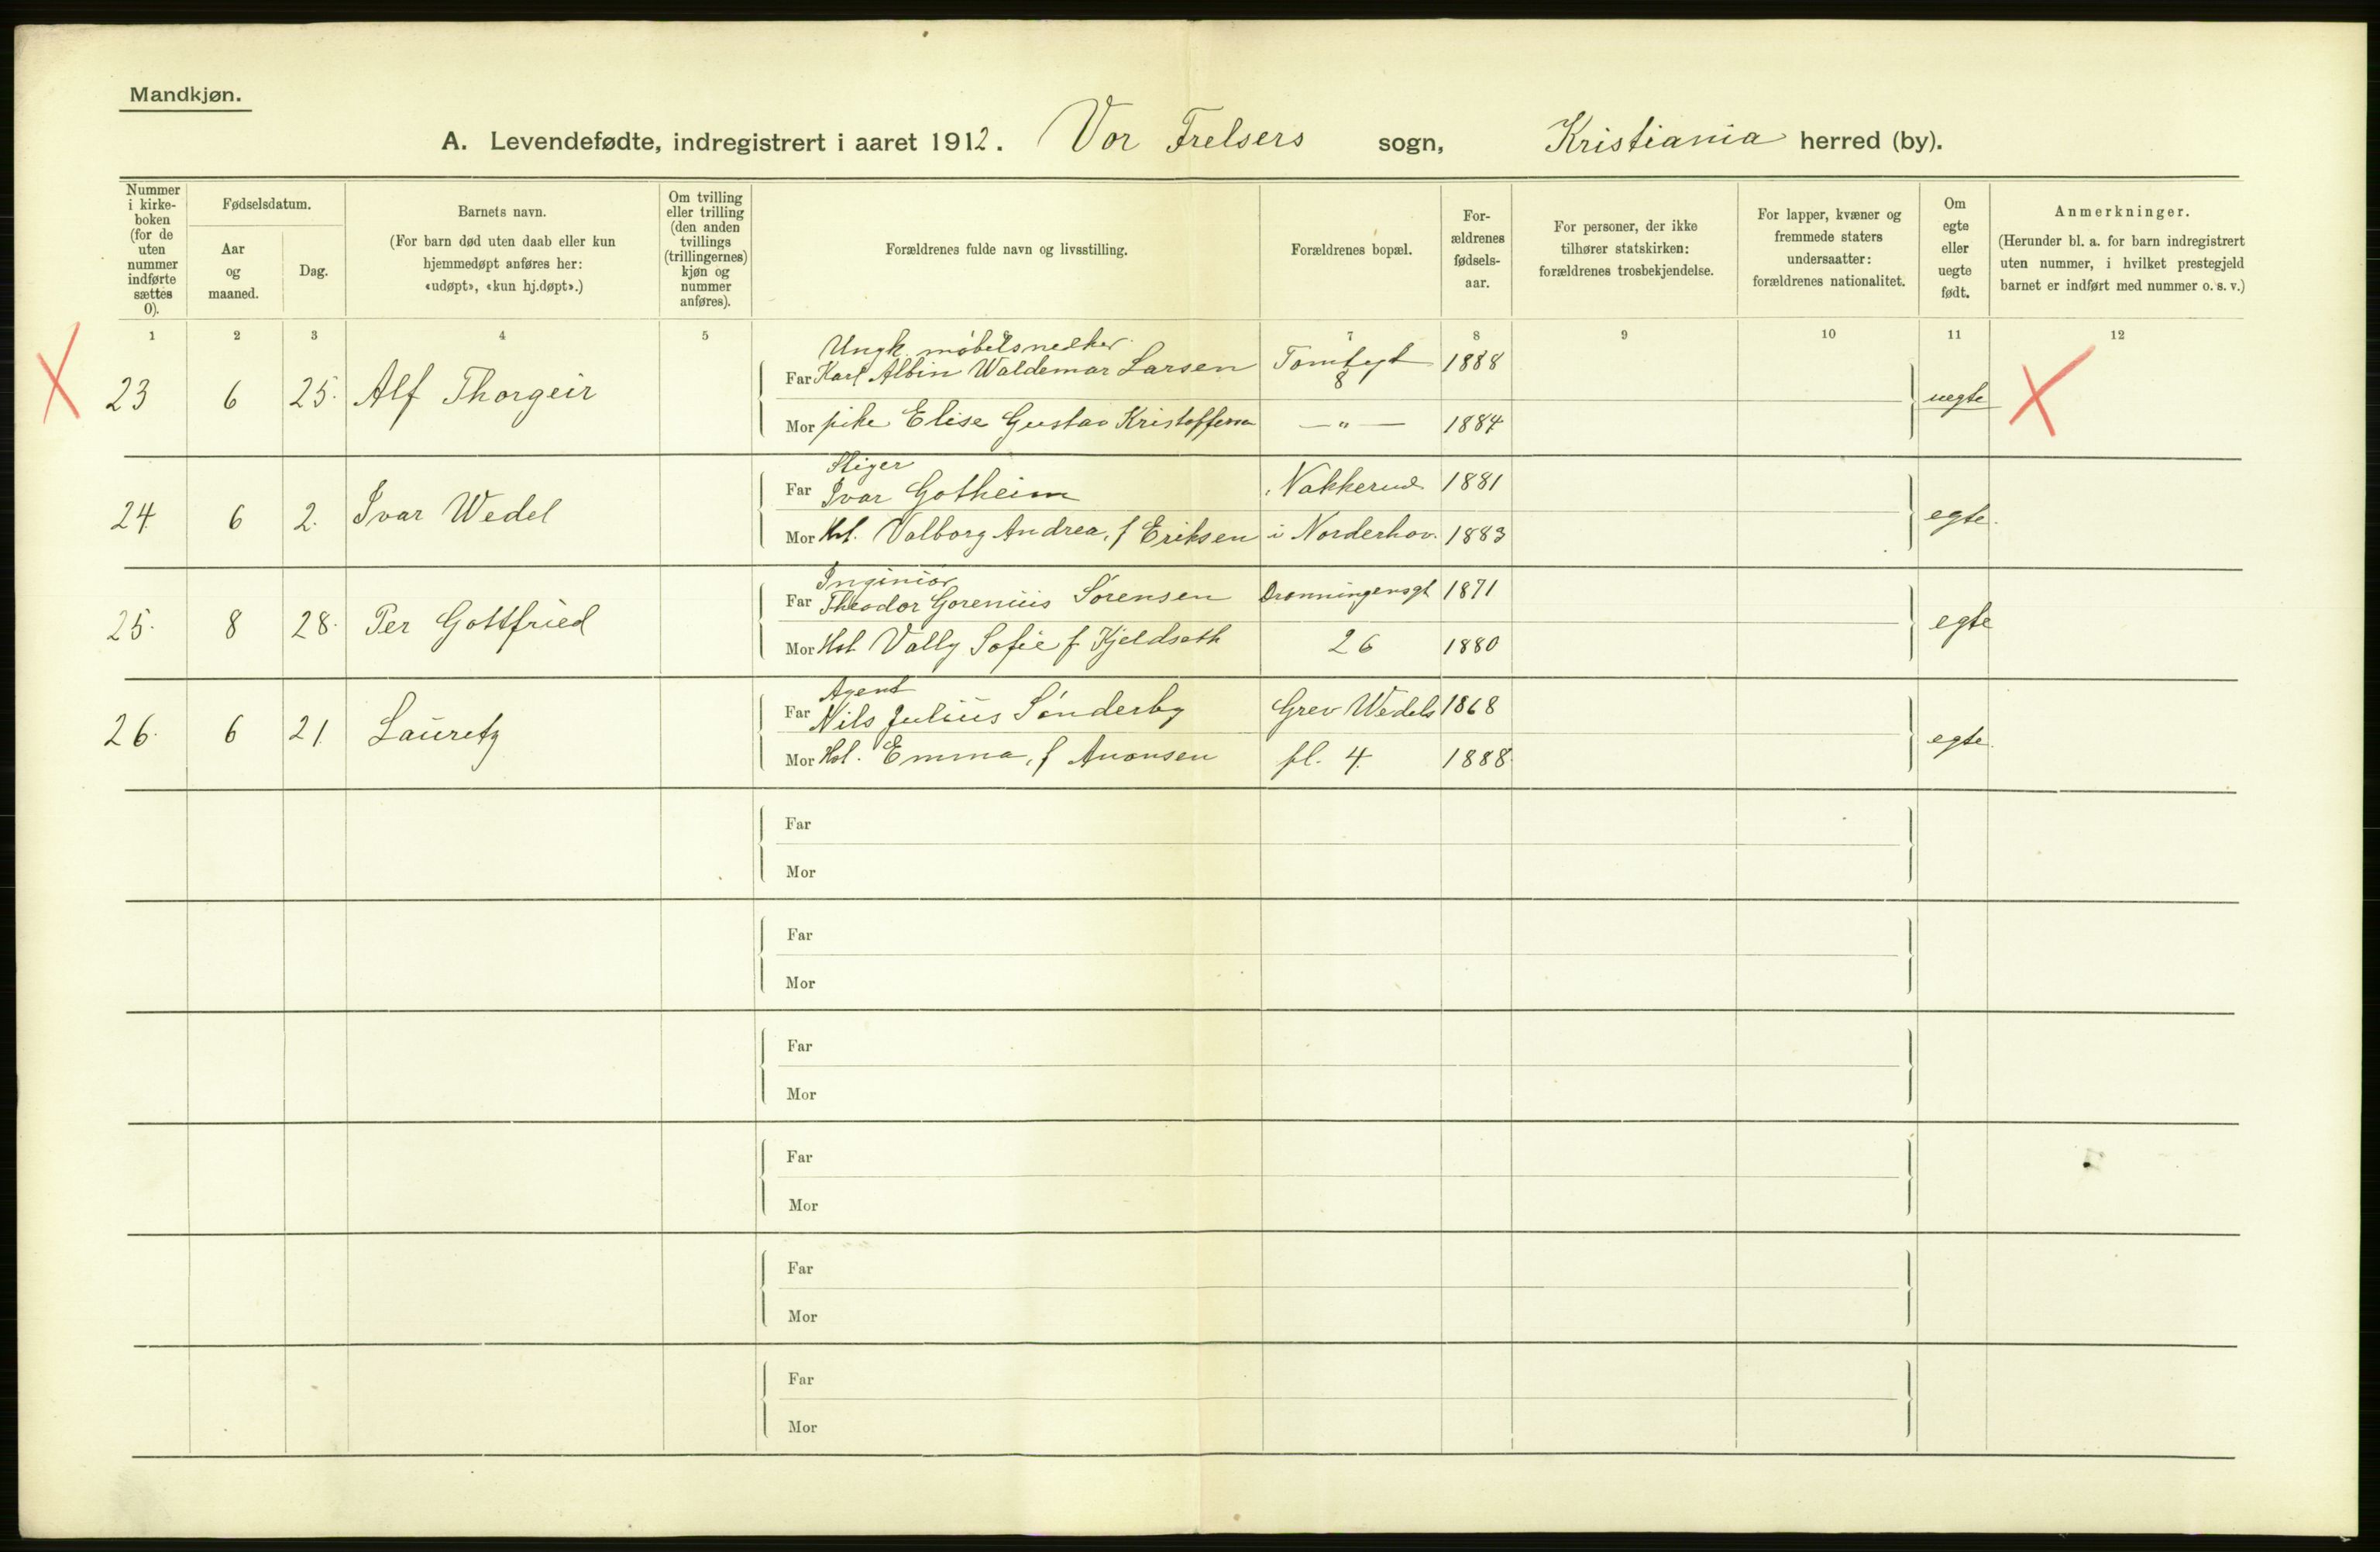 Mandkjøn.
A. Levendefødte, indregistrert i aaret 1912. Vor Frelsers sogn, Kristiania herred (by).
Nummer i kirke-boken (for de uten nummer indførte sættes 0).
Fødselsdatum.
Aar og maaned.
Dag.
Barnets navn.
(For barn død uten daab eller kun hjemmedøpt anføres her: «udøpt», «kun hj.døpt».)
Om tvilling eller trilling (den anden tvillings (trillingernes) kjøn og nummer anføres).
Forældrenes fulde navn og livsstilling.
Forældrenes bopæl.
For-ældrenes fødsels-aar.
For personer, der ikke tilhører statskirken: forældrenes trosbekjendelse.
For lapper, kvæner og fremmede staters undersaatter: forældrenes nationalitet.
Om egte eller uegte født.
Anmerkninger.
(Herunder bl. a. for barn indregistrert uten nummer, i hvilket prestegjeld barnet er indført med nummer o. s. v.)
1 2 3 4 5 6 7 8 9 10 11 12
Ungk. møbelsnedker
23 6 25. Alf Thorgeir Far Karl Albin Waldemar Larsen Tomtegt 8 1888 uegte
Mor pike Elise Gustav Kristoffersen — " — 1884
Stiger
24. 6 2. Ivar Wedel Far Ivar Gotheim Nakkerud 1881 egte.
Mor Hst. Valborg Andrea, f Eriksen i Norderhov. 1883
Inginiør
25. 8 28. Per Gottfried Far Theodor Gorenius Sørensen Dronningensgt 1871 egte
Mor Hst Vally Sofie f Kjeldseth 26 1880
Agent
26. 6 21 Lauretz Far Nils Julius Sønderby Grev Wedels 1868 egte.
Mor Hst. Emma, f Auonsen pl. 4. 1888.
Far
Mor
Far
Mor
Far
Mor
Far
Mor
Far
Mor
Far
Mor